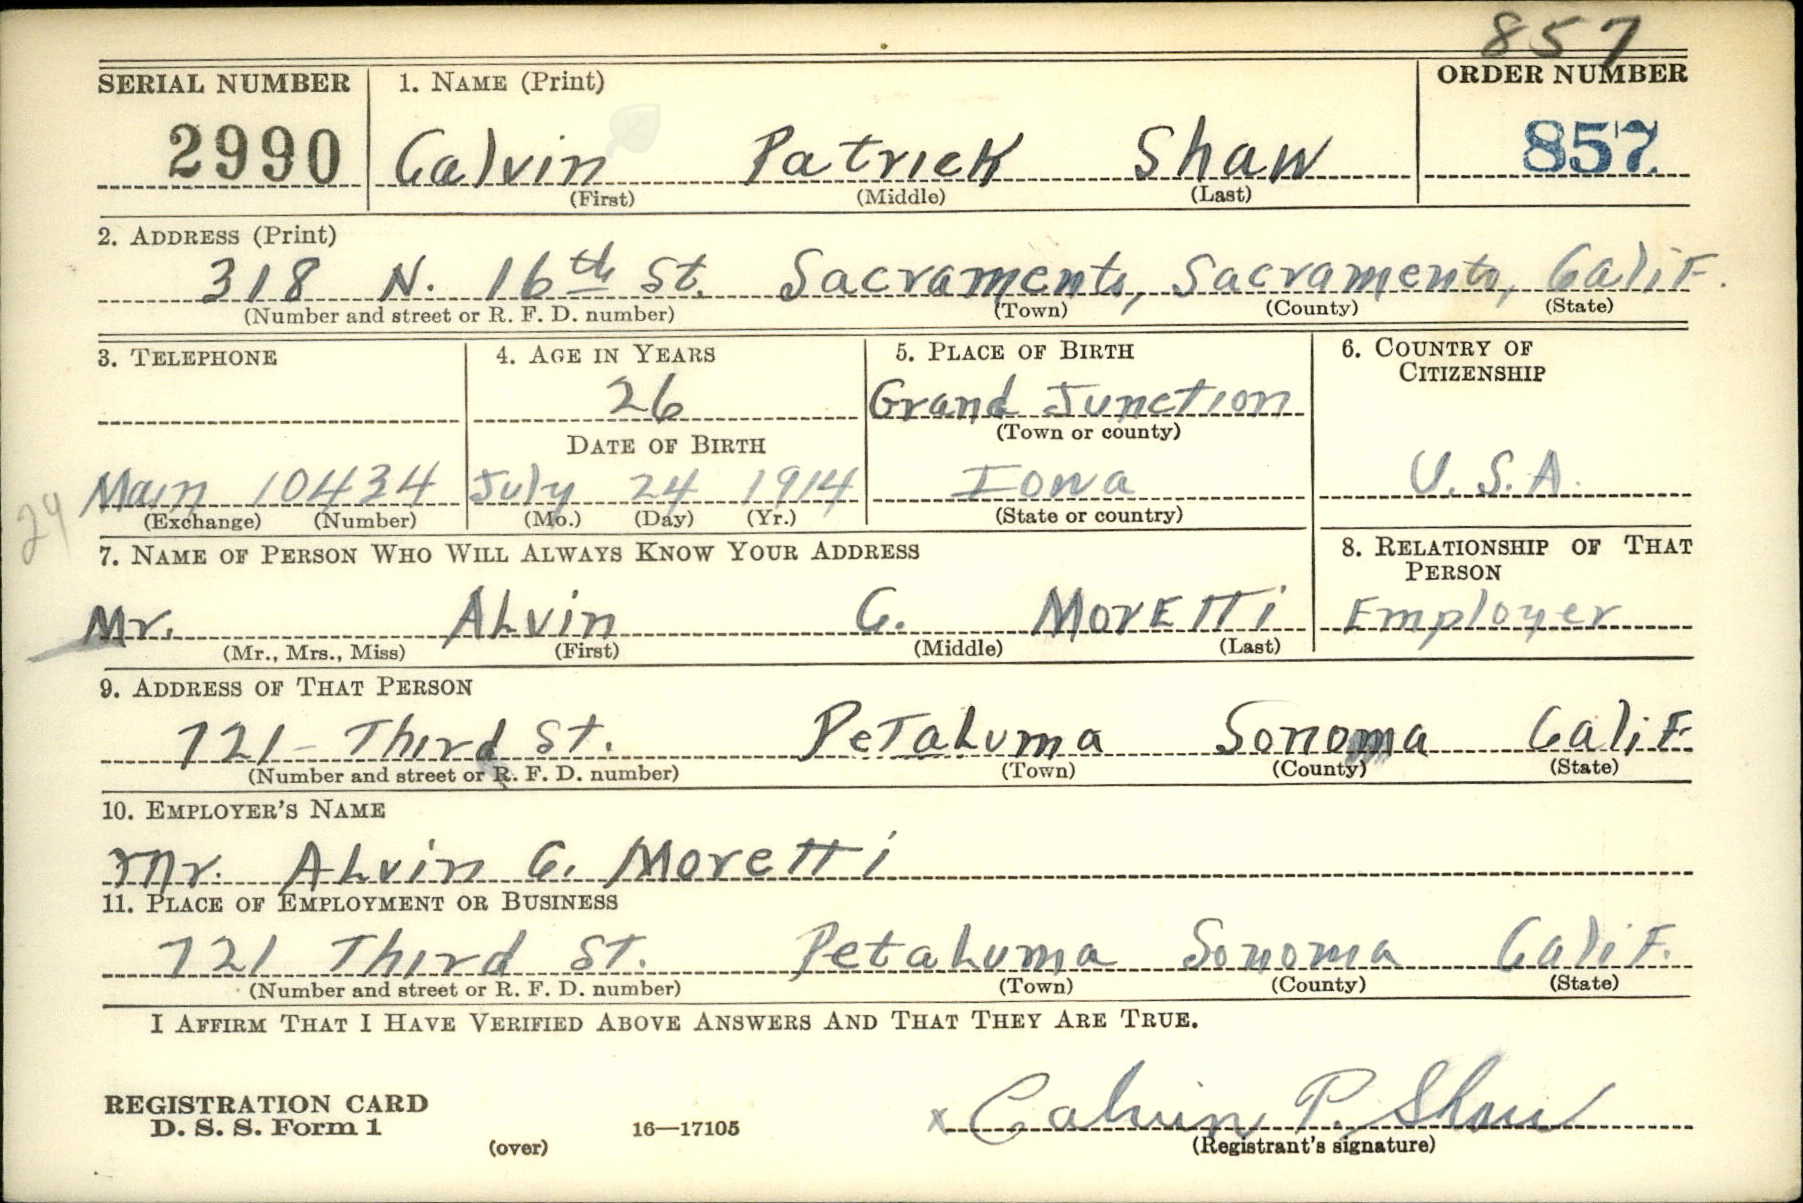 857
SERIAL NUMBER 1. NAME (Print) ORDER NUMBER
2990 Calvin Patrick Shaw 857.
(First) (Middle) (Last)
2. ADDRESS (Print)
318 N. 16th St. Sacramento, Sacramento, Calif.
(Number and street or R. F. D. number) (Town) (County) (State)
3. TELEPHONE 4. AGE IN YEARS 5. PLACE OF BIRTH 6. COUNTRY OF
CITIZENSHIP
26 Grand Junction
DATE OF BIRTH (Town or county)
Main 10434 July 24 1914 Iowa U.S.A.
(Exchange) (Number) (Mo.) (Day) (Yr.) (State or country)
24
7. NAME OF PERSON WHO WILL ALWAYS KNOW YOUR ADDRESS 8. RELATIONSHIP OF THAT
PERSON
Mr. ALvin G. MorETTi Employer
(Mr., Mrs., Miss) (First) (Middle) (Last)
9. ADDRESS OF THAT PERSON
721 Third St. PeTaLuma Sonoma Calif.
(Number and street or R. F. D. number) (Town) (County) (State)
10. EMPLOYER'S NAME
Mr. ALvin G. MoreTTi
11. PLACE OF EMPLOYMENT OR BUSINESS
721 Third ST. PetaLuma Sonoma Calif.
(Number and street or R. F. D. number) (Town) (County) (State)
I AFFIRM THAT I HAVE VERIFIED ABOVE ANSWERS AND THAT THEY ARE TRUE.
REGISTRATION CARD
D. S. S. Form 1 (over) 16—17105 x Calvin P. Shaw
(Registrant's signature)